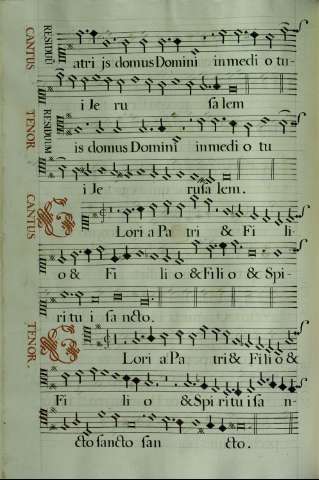 CANTUS RESIDUŨ
atri js domus Domini in medi o tu-
i Je ru salem
TENOR RESIDUUM
is domus Domini in medi o tu
i Je rusalem.
CANTUS
Lori a Pa tri & Fi li-
o & Fi li o & Fili o & Spi-
ritu i sancto.
TENOR.
Lori a Pa tri & Filio &
Fi li o & Spi ritu i sa n-
cto sancto san cto.